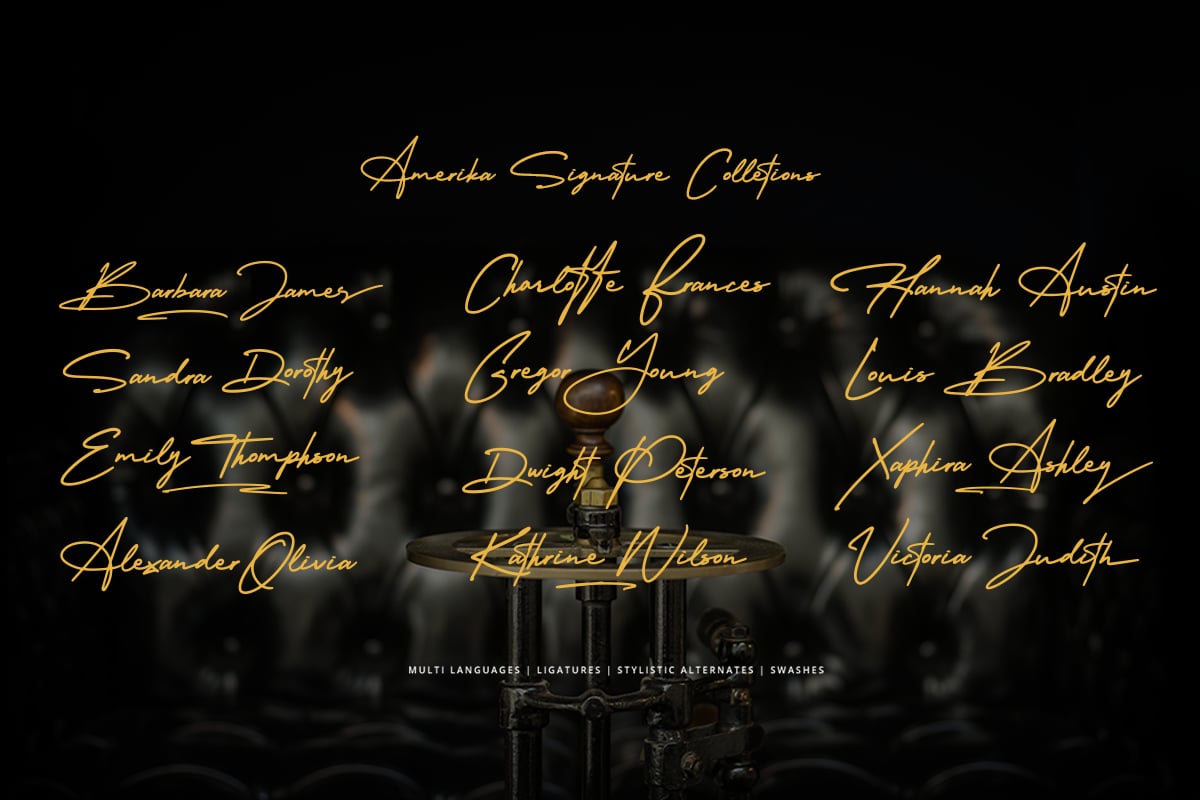 Amerika Signature Colletions
Barbara James
Charlotte Frances
Hannah Austin
Sandra Dorothy
Gregor Young
Louis Bradley
Emily Thomphson
Dwight Peterson
Xaphira Ashley
Alexander Olivia
Kathrine Wilson
Victoria Judith
MULTI LANGUAGES | LIGATURES | STYLISTIC ALTERNATES | SWASHES